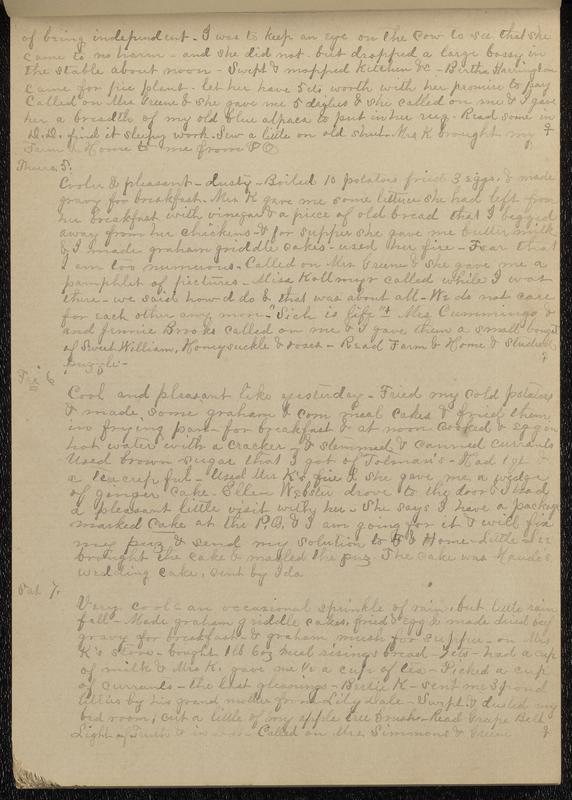 of being independent - I was to keep an eye on the cow to see that she
came to no harm - and she did not - but dropped a large bossy in
the stable about noon - Swept & mopped kitchen &c - Birtha Harrington
came for pie plant - let her have 5 cts worth with her promise to pay
Called on Mrs Greene & she gave me 5 & she called on me & I gave
her a breadth of my old blue alpaca to put in her rug - Read some in
D.D. find it sleepy work. Sew a little on old skirt - Mrs K brought my
Farm & Home to me from P.O.
Thurs. 5.
Cooler & pleasant - dusty - Boiled 10 potatoes fried 3 eggs, & made
gravy for breakfast - Mrs K gave me some lettuce she had left from
her breakfast with vinegar & a piece of old bread that I begged
away from her chickens - & for supper she gave me buttermilk
& I made graham griddle cakes - used her fire - Fear that
I am too numerous - Called on Mrs Greene & she gave me a
pamphlet of pictures - Miss Kollmyr called while I was
there - we said how'd do & that was about all - We do not care
for each other any more - "Sich is life" & Mrs Cummings &
and Jennie Brooks called on me & I gave them a small bouquet
of Sweet William, Honeysuckle & roses - Read Farm & Home & studied
puzzle -
Fri 6
Cool and pleasant like yesterday - Fried my cold potatoes
& made some graham & corn meal cakes & fried them
in frying pan - for breakfast & at noon cooked & egg in
hot water with a cracker - & stemmed & canned currants
Used brown sugar that I got of Tolman's - Had 1 qt &
a teacup full - Used Mrs K's fire & she gave me a wedge
of ginger cake - Ellen Webster drove to the door & I had
a pleasant little visit with her - She says I have a package
marked Cake at the P.O. & I am going for it & will fix
my puz & send my solution to F & Home - Little
brought the cake & mailed the puz - The cake was Maude's
wedding cake, sent by Ida
Sat 7.
Very cool & an occasional sprinkle of rain, but little rain
fall - Made graham griddle cakes, fried & egg & made dried beef
gravy for breakfast & graham mush for supper - on Mrs
K's stove - bought 1 lb 6 oz meal risings bread - 7cts - had a cup
of milk & Mrs K. gave me ½ a cup of tea - Picked a cup
of currants - the last gleanings - Bertie K - sent me 3 pond
lillies by his grand mother from Lily Dale - Swept & dusted my
bed room, cut a little of my apple tree brush - Read Grape Belt
Light of Truth & - Called on Mrs Simmons & Greene